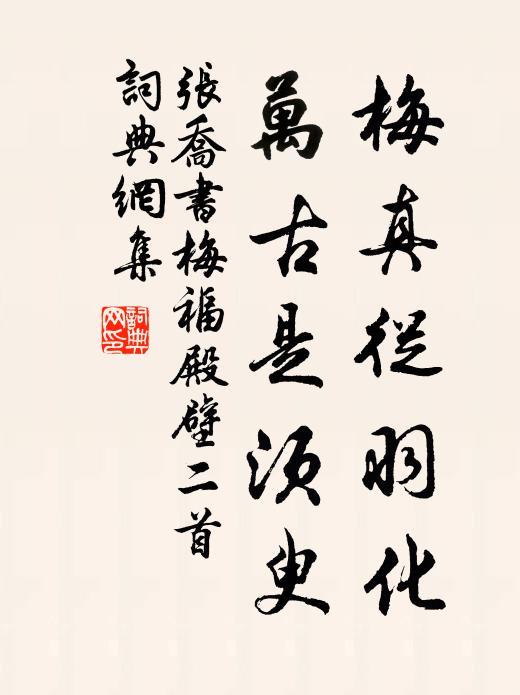 梅真從羽化
萬古是須臾
張喬書梅福殿壁二首
詞典網集
詞典网印